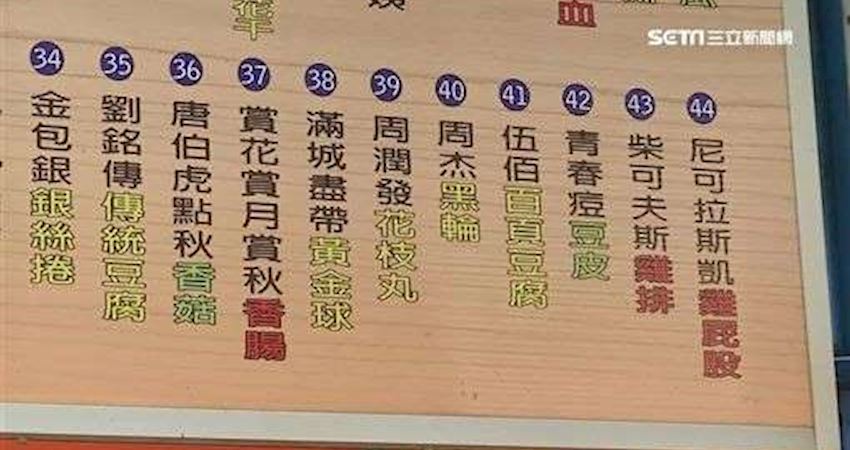 SETN三立新聞網
花干
血
34
金包銀銀絲捲
35
劉銘傳傳統豆腐
36
唐伯虎點秋香菇
37
賞花賞月賞秋香腸
38
滿城盡帶黃金球
39
周潤發花枝丸
40
周杰黑輪
41
伍佰百頁豆腐
42
青春痘豆皮
43
柴可夫斯雞排
44
尼可拉斯凱雞屁股